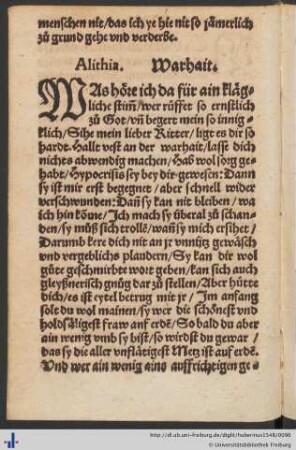 menschen nit/das ich ye hie nit so jämerlich
zů grund gehe vnd verderbe.
Alithia. Warhait.
WAs höre ich da für ain kläg-
liche stim̃/wer rüffet so ernstlich
zů Got/vñ begert mein so innig-
klich/Sihe mein lieber Ritter/ligt es dir so
hardt. Halt vest an der warhait/lass dich
nichts abwendig machen/Hab wol sorg ge-
habt/Hypocrisis sey bey dir gewesen: Dann
sy ist mir erst begegnet/aber schnell wider
verschwunden: Dañ sy kan nit bleiben/wa
ich hin köme/Jch mach sy überal zů schan-
den/sy můß sich trollẽ/wañ sy mich ersihet/
Darumb kere dich nit an jr vnnütz gewäsch
vnd vergeblichs plaudern/Sy kan dir wol
gůte geschmirbte wort geben/kan sich auch
gleyßnerisch gnůg dar zů stellen/Aber hütte
dich/es ist eytel betrug mit jr/Jm anfang
solt du wol mainen/sy wer die schönest vnd
holdsäligest fraw auf erdẽ/So bald du aber
ain wenig vmb sy bist/so wirdst du gewar/
das sy die aller vnflätigest Metz ist auf erdẽ.
Vnd wer ain wenig ains auffrichtigen ge-
http://dl.ub.uni-freiburg.de/diglit/hubernus1546/0096
© Universitätsbibliothek Freiburg